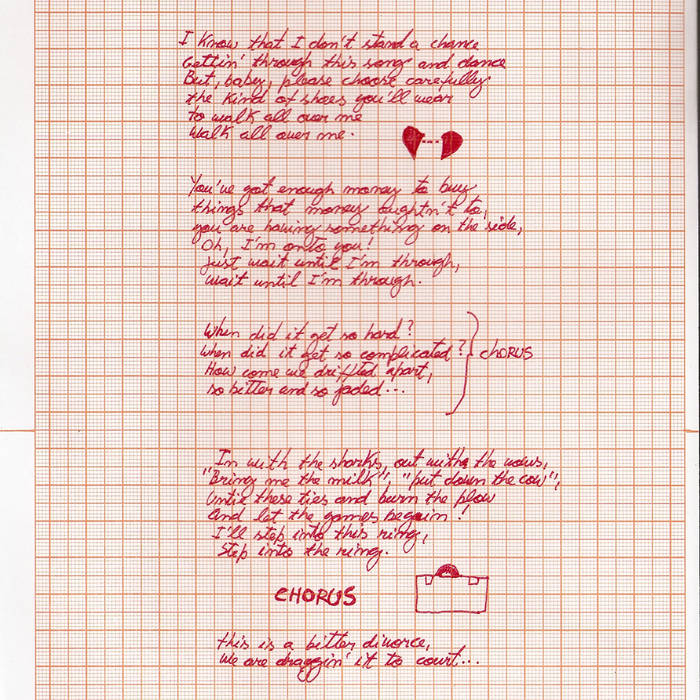 I Know that I don't stand a chance
Gettin' through this song and dance
But, baby, please choose carefully
the kind of shoes you'll wear
to walk all over me
Walk all over me.
You've got enough money to buy
things that money oughtn't to,
you are having something on the side,
Oh, I'm onto you!
Just wait until I'm through,
wait until I'm through.
When did it get so hard?
when did it get so complicated?
CHORUS
How come we drifted apart,
so bitter and so jaded...
In with the sharks, out with the
"Bring me the milk", "put down the cow",
Until these ties and burn the plow
And let the games beguin!
I'll step into this ring,
Step into the ring.
CHORUS
this is a bitter divorce,
we are draggin' it to court...